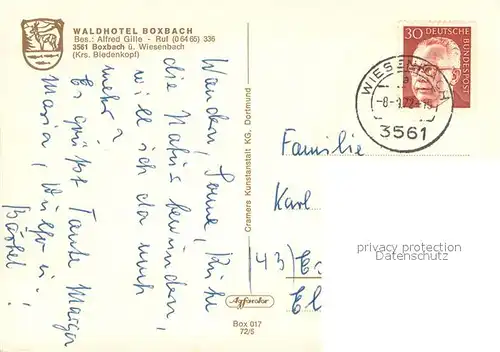 WALDHOTEL BOXBACH
Bes.: Alfred Gille - Ruf (0 64 65) 336
3561 Boxbach ü. Wiesenbach
(Krs. Biedenkopf)
Wandern, Sonne, Ruhe
die Natur bewundern,
will ich da noch
mehr?
Es grüßt Tante Marga
Maria, Wilfr. u.
Bärbel!
Cramers Kunstanstalt KG. Dortmund
Agfacolor
Box 017
72/5
30 DEUTSCHE
BUNDESPOST
WIESENBACH
3561
Familie
Karl
(43) Es
El
privacy protection
Datenschutz